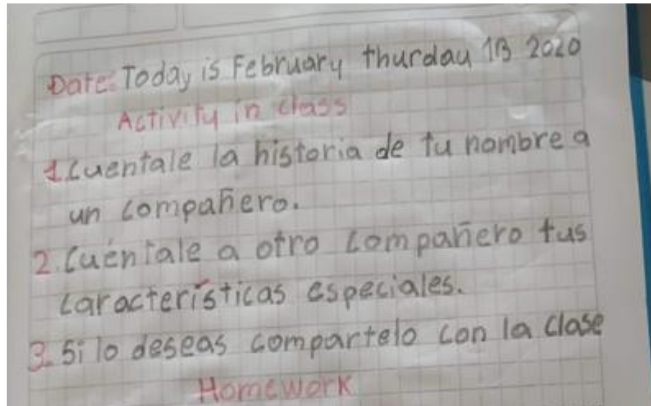 Date: Today is February thurdau 13 2020
Activity in class
1. Cuentale la historia de tu nombre a
un compañero.
2. Cuéntale a otro compañero tus
características especiales.
3. Si lo deseas compartelo con la clase
Homework